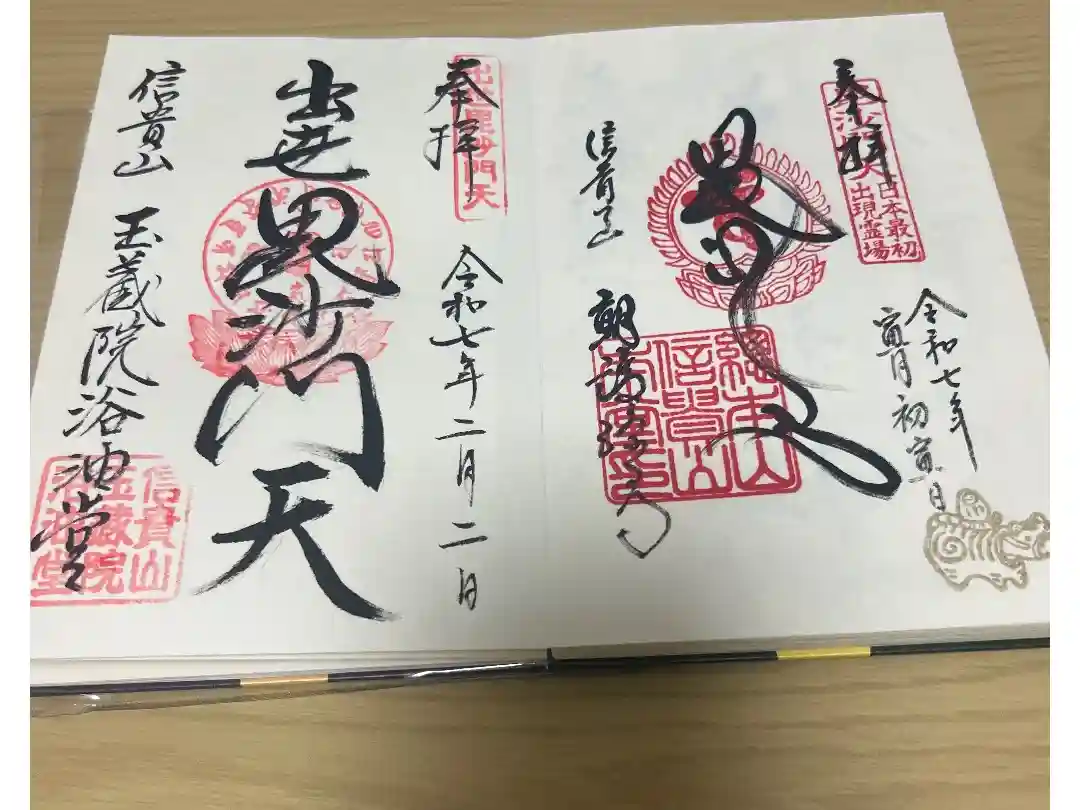 奉拝
日本最初
出現霊場
令和七年
寅月初寅日
信貴山
総本山
信貴山
朝護孫子寺
奉拝
出世毘沙門天
令和七年二月二日
出世毘沙門天
信貴山
玉蔵院浴油堂
信貴山
玉蔵院
浴油堂